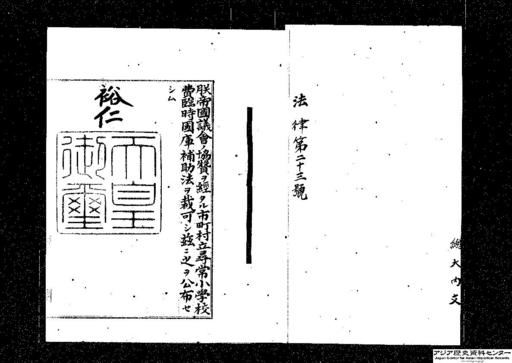 總大内文
法律第二十三號
朕帝國議會ノ協贊ヲ經タル市町村立尋常小學校
費臨時國庫補助法ヲ裁可シ玆ニ之ヲ公布セ
シム
裕仁
天皇
御璽
アジア歴史資料センター
Japan Center for Asian Historical Records